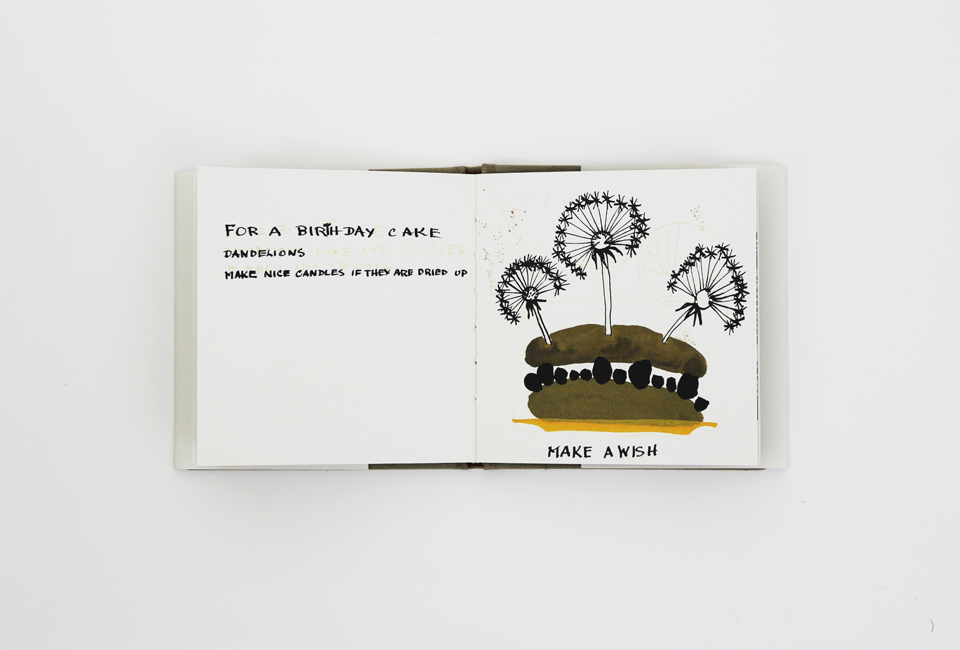 FOR A BIRTHDAY CAKE
DANDELIONS
MAKE NICE CANDLES IF THEY ARE DRIED UP
MAKE A WISH